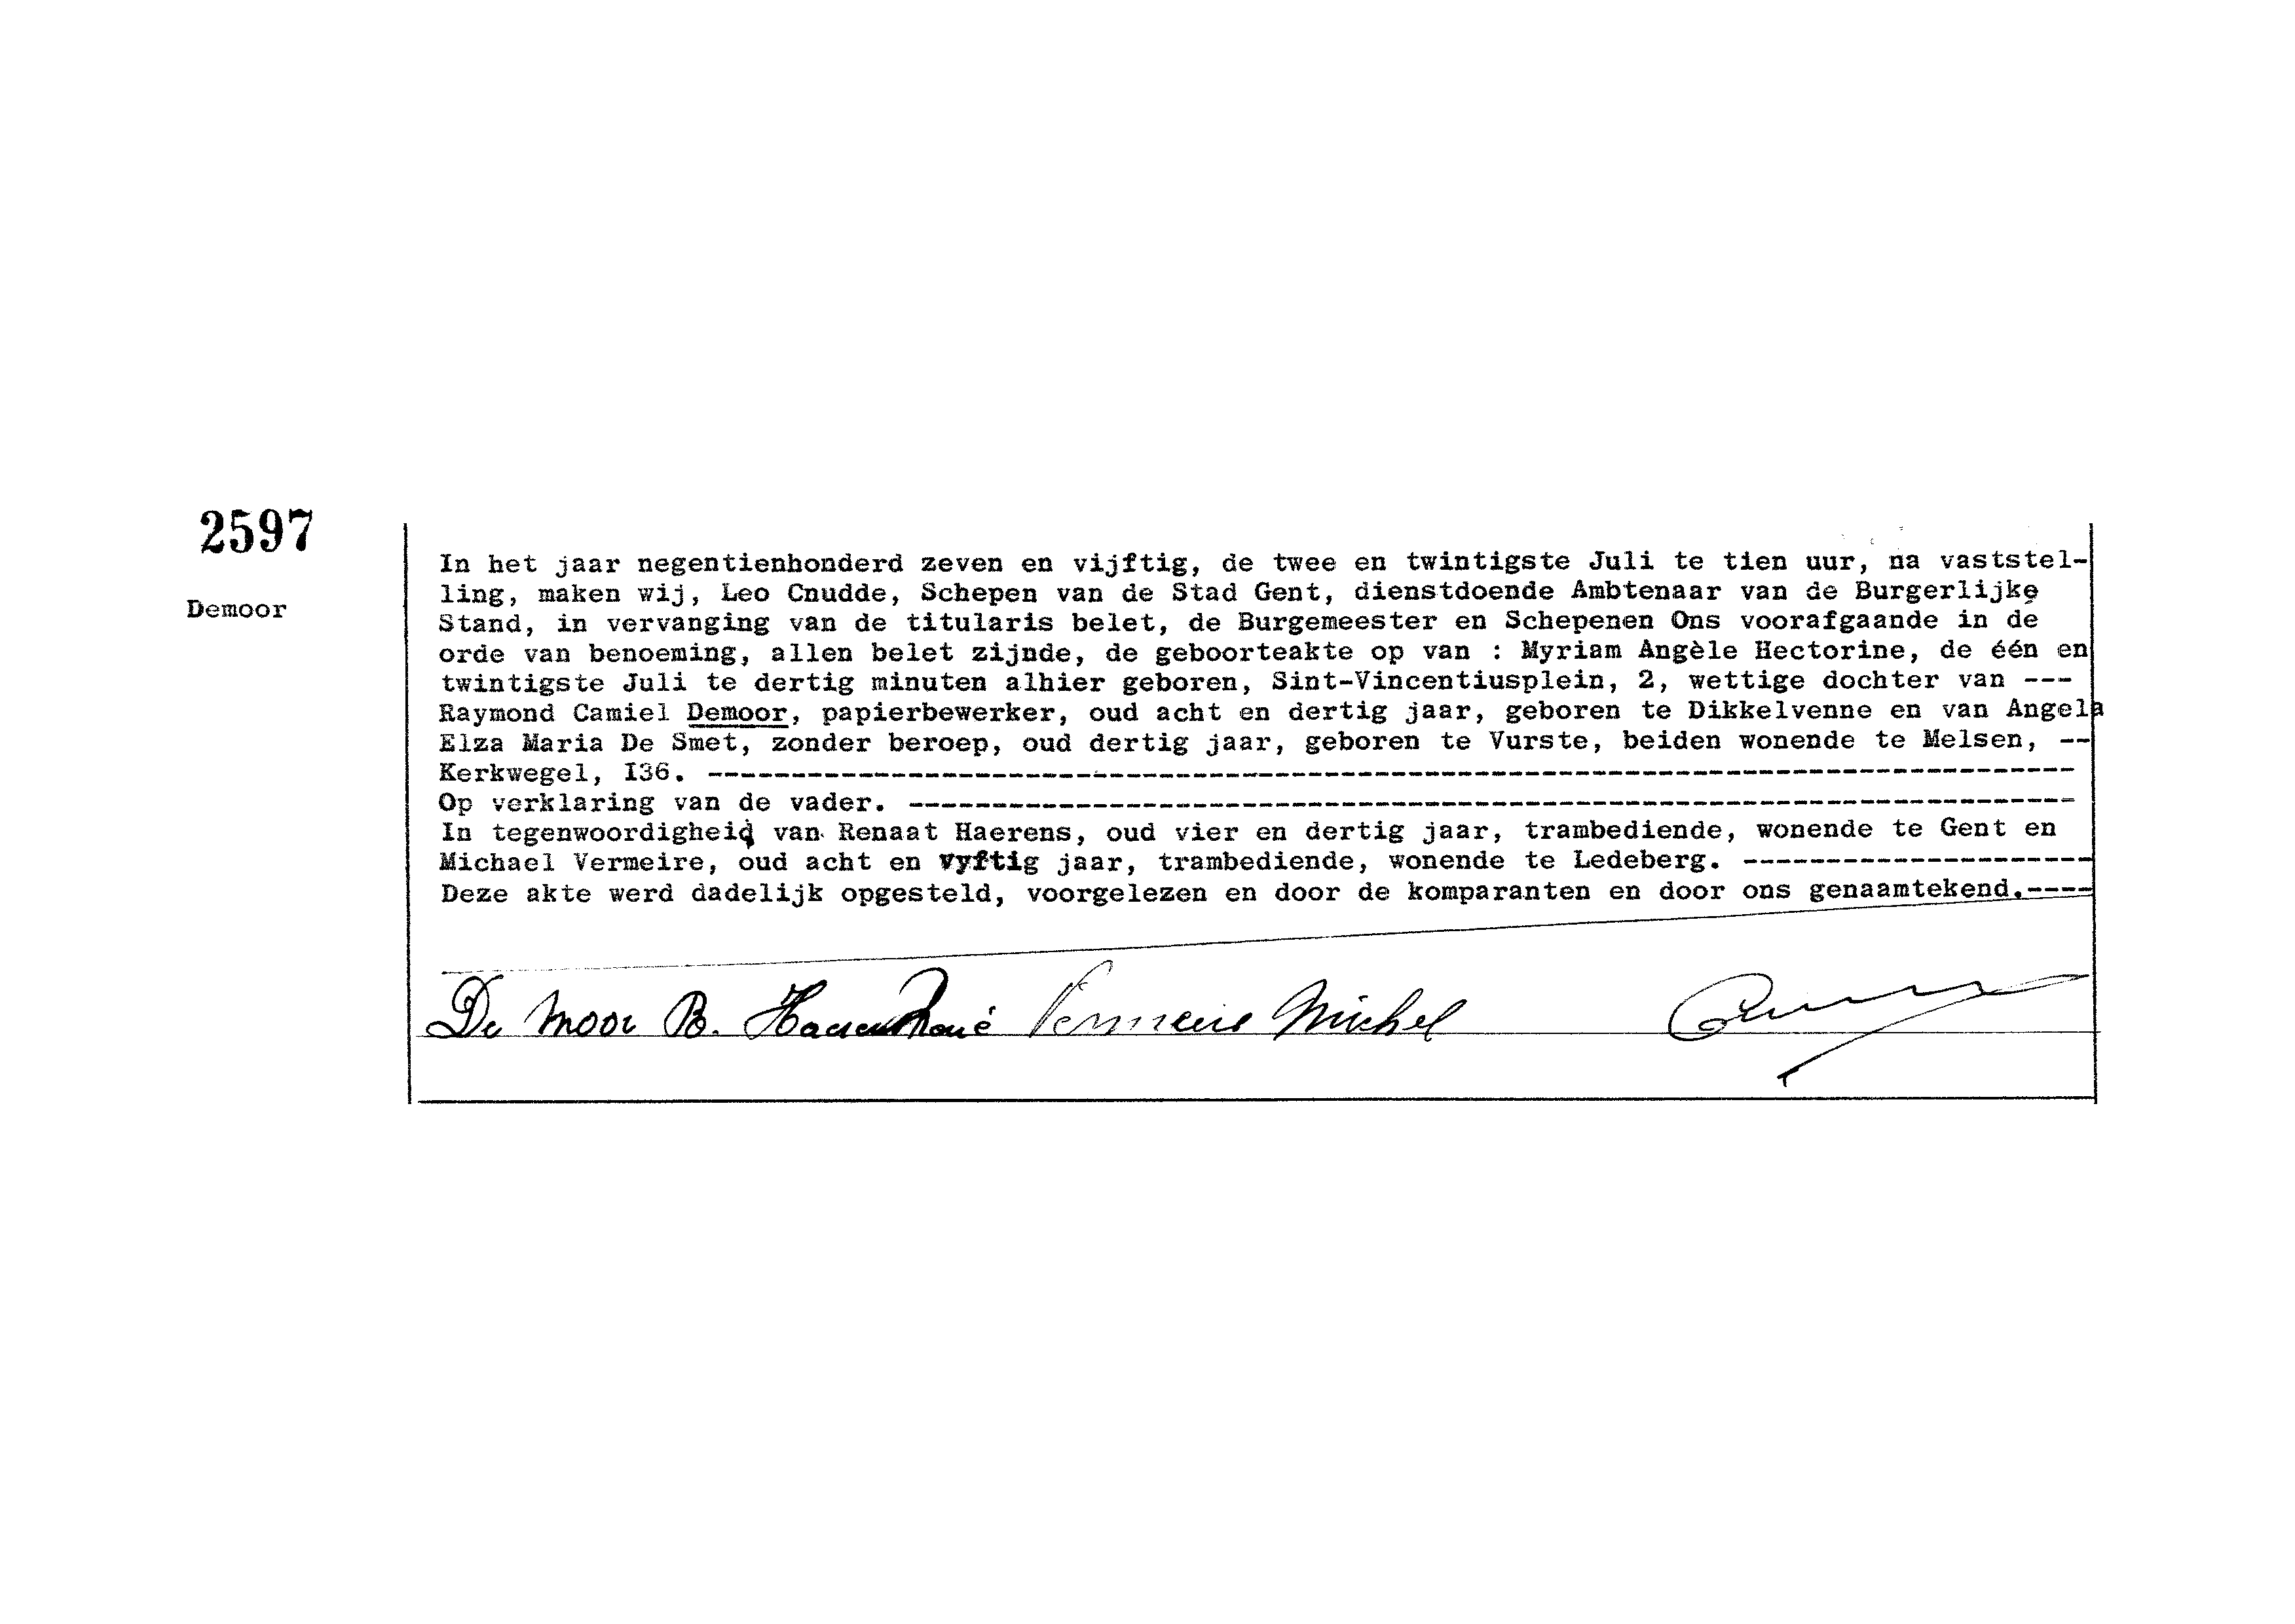 2597
Demoor
In het jaar negentienhonderd zeven en vijftig, de twee en twintigste Juli te tien uur, na vaststel-
ling, maken wij, Leo Cnudde, Schepen van de Stad Gent, dienstdoende Ambtenaar van de Burgerlijke
Stand, in vervanging van de titularis belet, de Burgemeester en Schepenen Ons voorafgaande in de
orde van benoeming, allen belet zijnde, de geboorteakte op van : Myriam Angèle Hectorine, de één en
twintigste Juli te dertig minuten alhier geboren, Sint-Vincentiusplein, 2, wettige dochter van ---
Raymond Camiel Demoor, papierbewerker, oud acht en dertig jaar, geboren te Dikkelvenne en van Angela
Elza Maria De Smet, zonder beroep, oud dertig jaar, geboren te Vurste, beiden wonende te Melsen, --
Kerkwegel, I36. ----------------------------------------------------------------------------------
Op verklaring van de vader. ----------------------------------------------------------------------
In tegenwoordigheid van Renaat Haerens, oud vier en dertig jaar, trambediende, wonende te Gent en
Michael Vermeire, oud acht en vyftig jaar, trambediende, wonende te Ledeberg. ---------------------
Deze akte werd dadelijk opgesteld, voorgelezen en door de komparanten en door ons genaamtekend.----
De Moor R. Haerens René Vermeire Michel